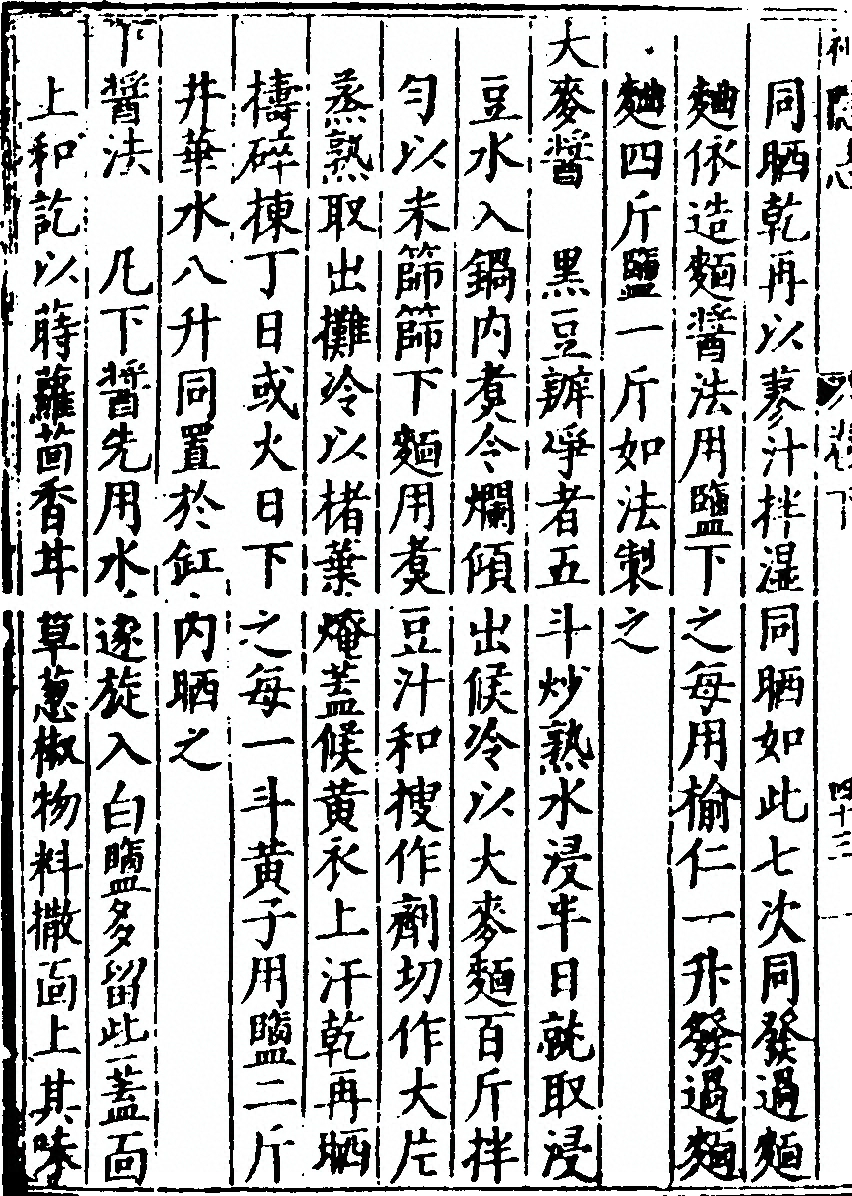 同晒乾再以蓼汁拌濕同晒如此七次同發過麵
麯依造麵醬法用鹽下之每用榆仁一升發過麵
麯四斤鹽一斤如法製之
大麥醬　黑豆辦凈者五斗炒熟水浸半日就取浸
豆水入鍋內煑令爛傾出候冷以大麥麵百斤拌
勻以末篩篩下麵用煑豆汁和搜作劑切作大片
蒸熟取出攤冷以楮葉㷈蓋候黄衣上汗乾再晒
擣碎揀丁日或火日下之每一斗黄子用鹽二斤
井華水八升同置於缸內晒之
下醬法　凡下醬先用水逐旋入白鹽多留此蓋面
上和訖以蒔蘿茴香甘草葱椒物料撒面上其味
卷下
四十三